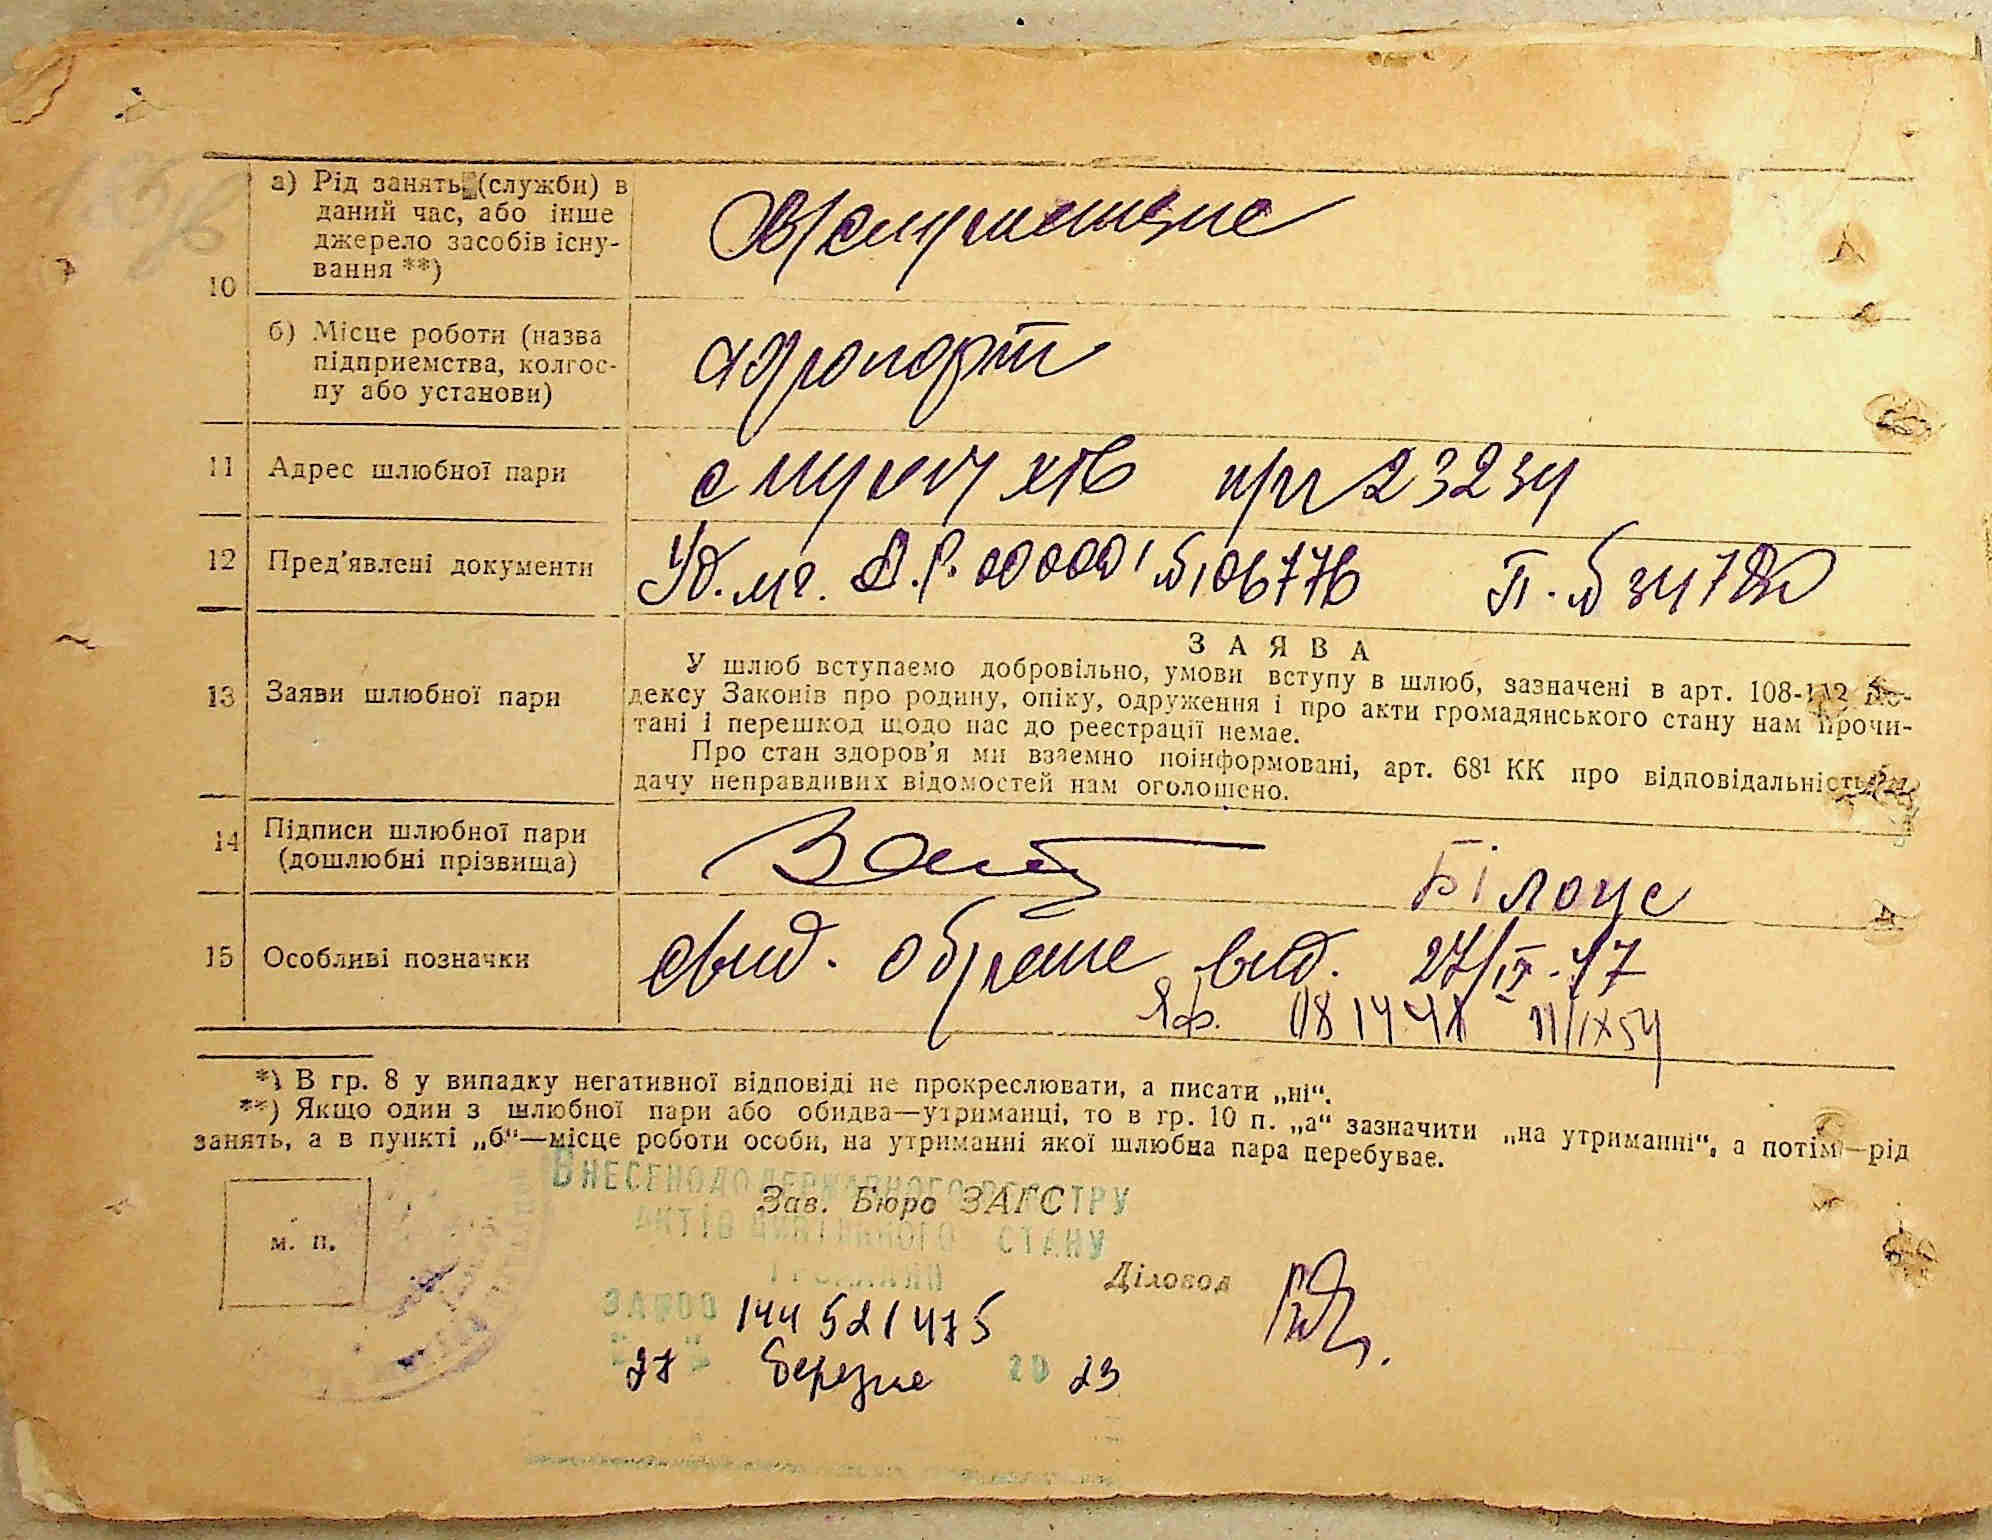 10
а) Рід занять (служби) в
даний час, або інше
джерело засобів існу-
вання **)
в/служащие
б) Місце роботи (назва
підприємства, колгос-
пу або установи)
аэропорт
11 Адрес шлюбної пари
п/я 23234
12 Пред'явлені документи
Уд. мг. 106776 П. № 34780
13 Заяви шлюбної пари
ЗАЯВА
У шлюб вступаємо добровільно, умови вступу в шлюб, зазначені в арт. 108-112 Ко-
дексу Законів про родину, опіку, одруження і про акти громадянського стану нам прочи-
тані і перешкод щодо нас до реєстрації немає.
Про стан здоров'я ми взаємно поінформовані, арт. 68¹ КК про відповідальність за
дачу неправдивих відомостей нам оголошено.
14 Підписи шлюбної пари
(дошлюбні прізвища)
Білоус
15 Особливі позначки
свид. о браке выд. 27/IX-47
Яф. 081448 11/IX 54
*) В гр. 8 у випадку негативної відповіді не прокреслювати, а писати „ні“.
**) Якщо один з шлюбної пари або обидва—утриманці, то в гр. 10 п. „а“ зазначити „на утриманні“, а потім—рід
занять, а в пункті „б“—місце роботи особи, на утриманні якої шлюбна пара перебуває.
ВНЕСЕНО ДО ДЕРЖАВНОГО РЕЄСТРУ
Зав. Бюро ЗАГС
АКТІВ ЦИВІЛЬНОГО СТАНУ
ГРОМАДЯН
м. п.
Діловод
ЗА №00 144521475
27 березня 20 23